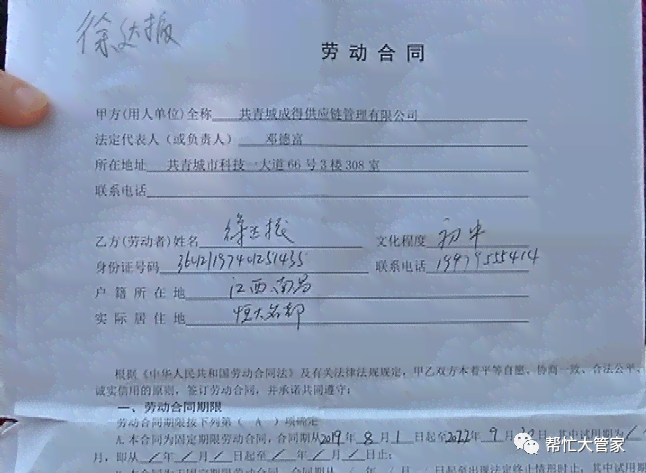 劳动合同
甲方(用人单位)全称 共青城成得供应链管理有限公司
法定代表人（或负责人） 邓德富
所在地址 共青城市科技一大道66号3楼308室
联系电话
乙方(劳动者)姓名 文化程度 初中
身份证号码 联系电话 19979555414
户籍所在地 江西南昌
实际居住地 恒大名都
根据《中华人民共和国劳动合同法》及有关法律法规规定，甲乙双方本着平等自愿、协商一致、合法公平、
诚实信用的原则，签订劳动合同，并承诺共同遵守：
一、劳动合同期限
劳动合同期限按下列第（ A ）项确定
A.本合同为固定期限劳动合同，合同期从2019年8月1日起至2022年9月 日，其中试用期为
月，即从 / 年 / 月 / 日起至 / 年 / 月 / 日止；
帮忙大管家